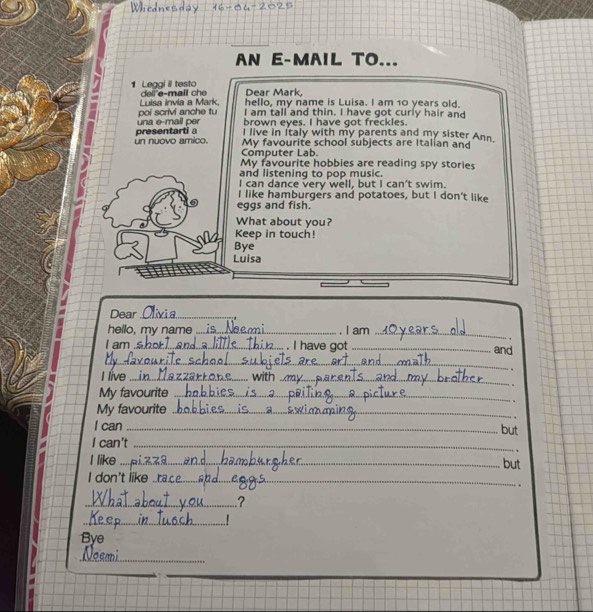 Whednesday 16-04-2025
AN E-MAIL TO...
1 Leggi il testo
dell'e-mail che
Luisa invia a Mark,
poi scrivi anche tu
una e-mail per
presentarti a
un nuovo amico.
Dear Mark,
hello, my name is Luisa. I am 10 years old.
I am tall and thin. I have got curly hair and
brown eyes. I have got freckles.
I live in Italy with my parents and my sister Ann.
My favourite school subjects are Italian and
Computer Lab.
My favourite hobbies are reading spy stories
and listening to pop music.
I can dance very well, but I can't swim.
I like hamburgers and potatoes, but I don't like
eggs and fish.
What about you?
Keep in touch!
Bye
Luisa
Dear Olivia,
hello, my name is Noemi. I am 10 years old.
I am short and a little thin. I have got and
My favourite school subjets are art and math.
I live in Mazzarrone with my parents and my brother.
My favourite hobbies is a paiting a picture.
My favourite hobbies is a swimming.
I can but
I can't.
I like pizza and hamburgher but
I don't like race and eggs.
What about you?
Keep in tuoch!
Bye
Noemi